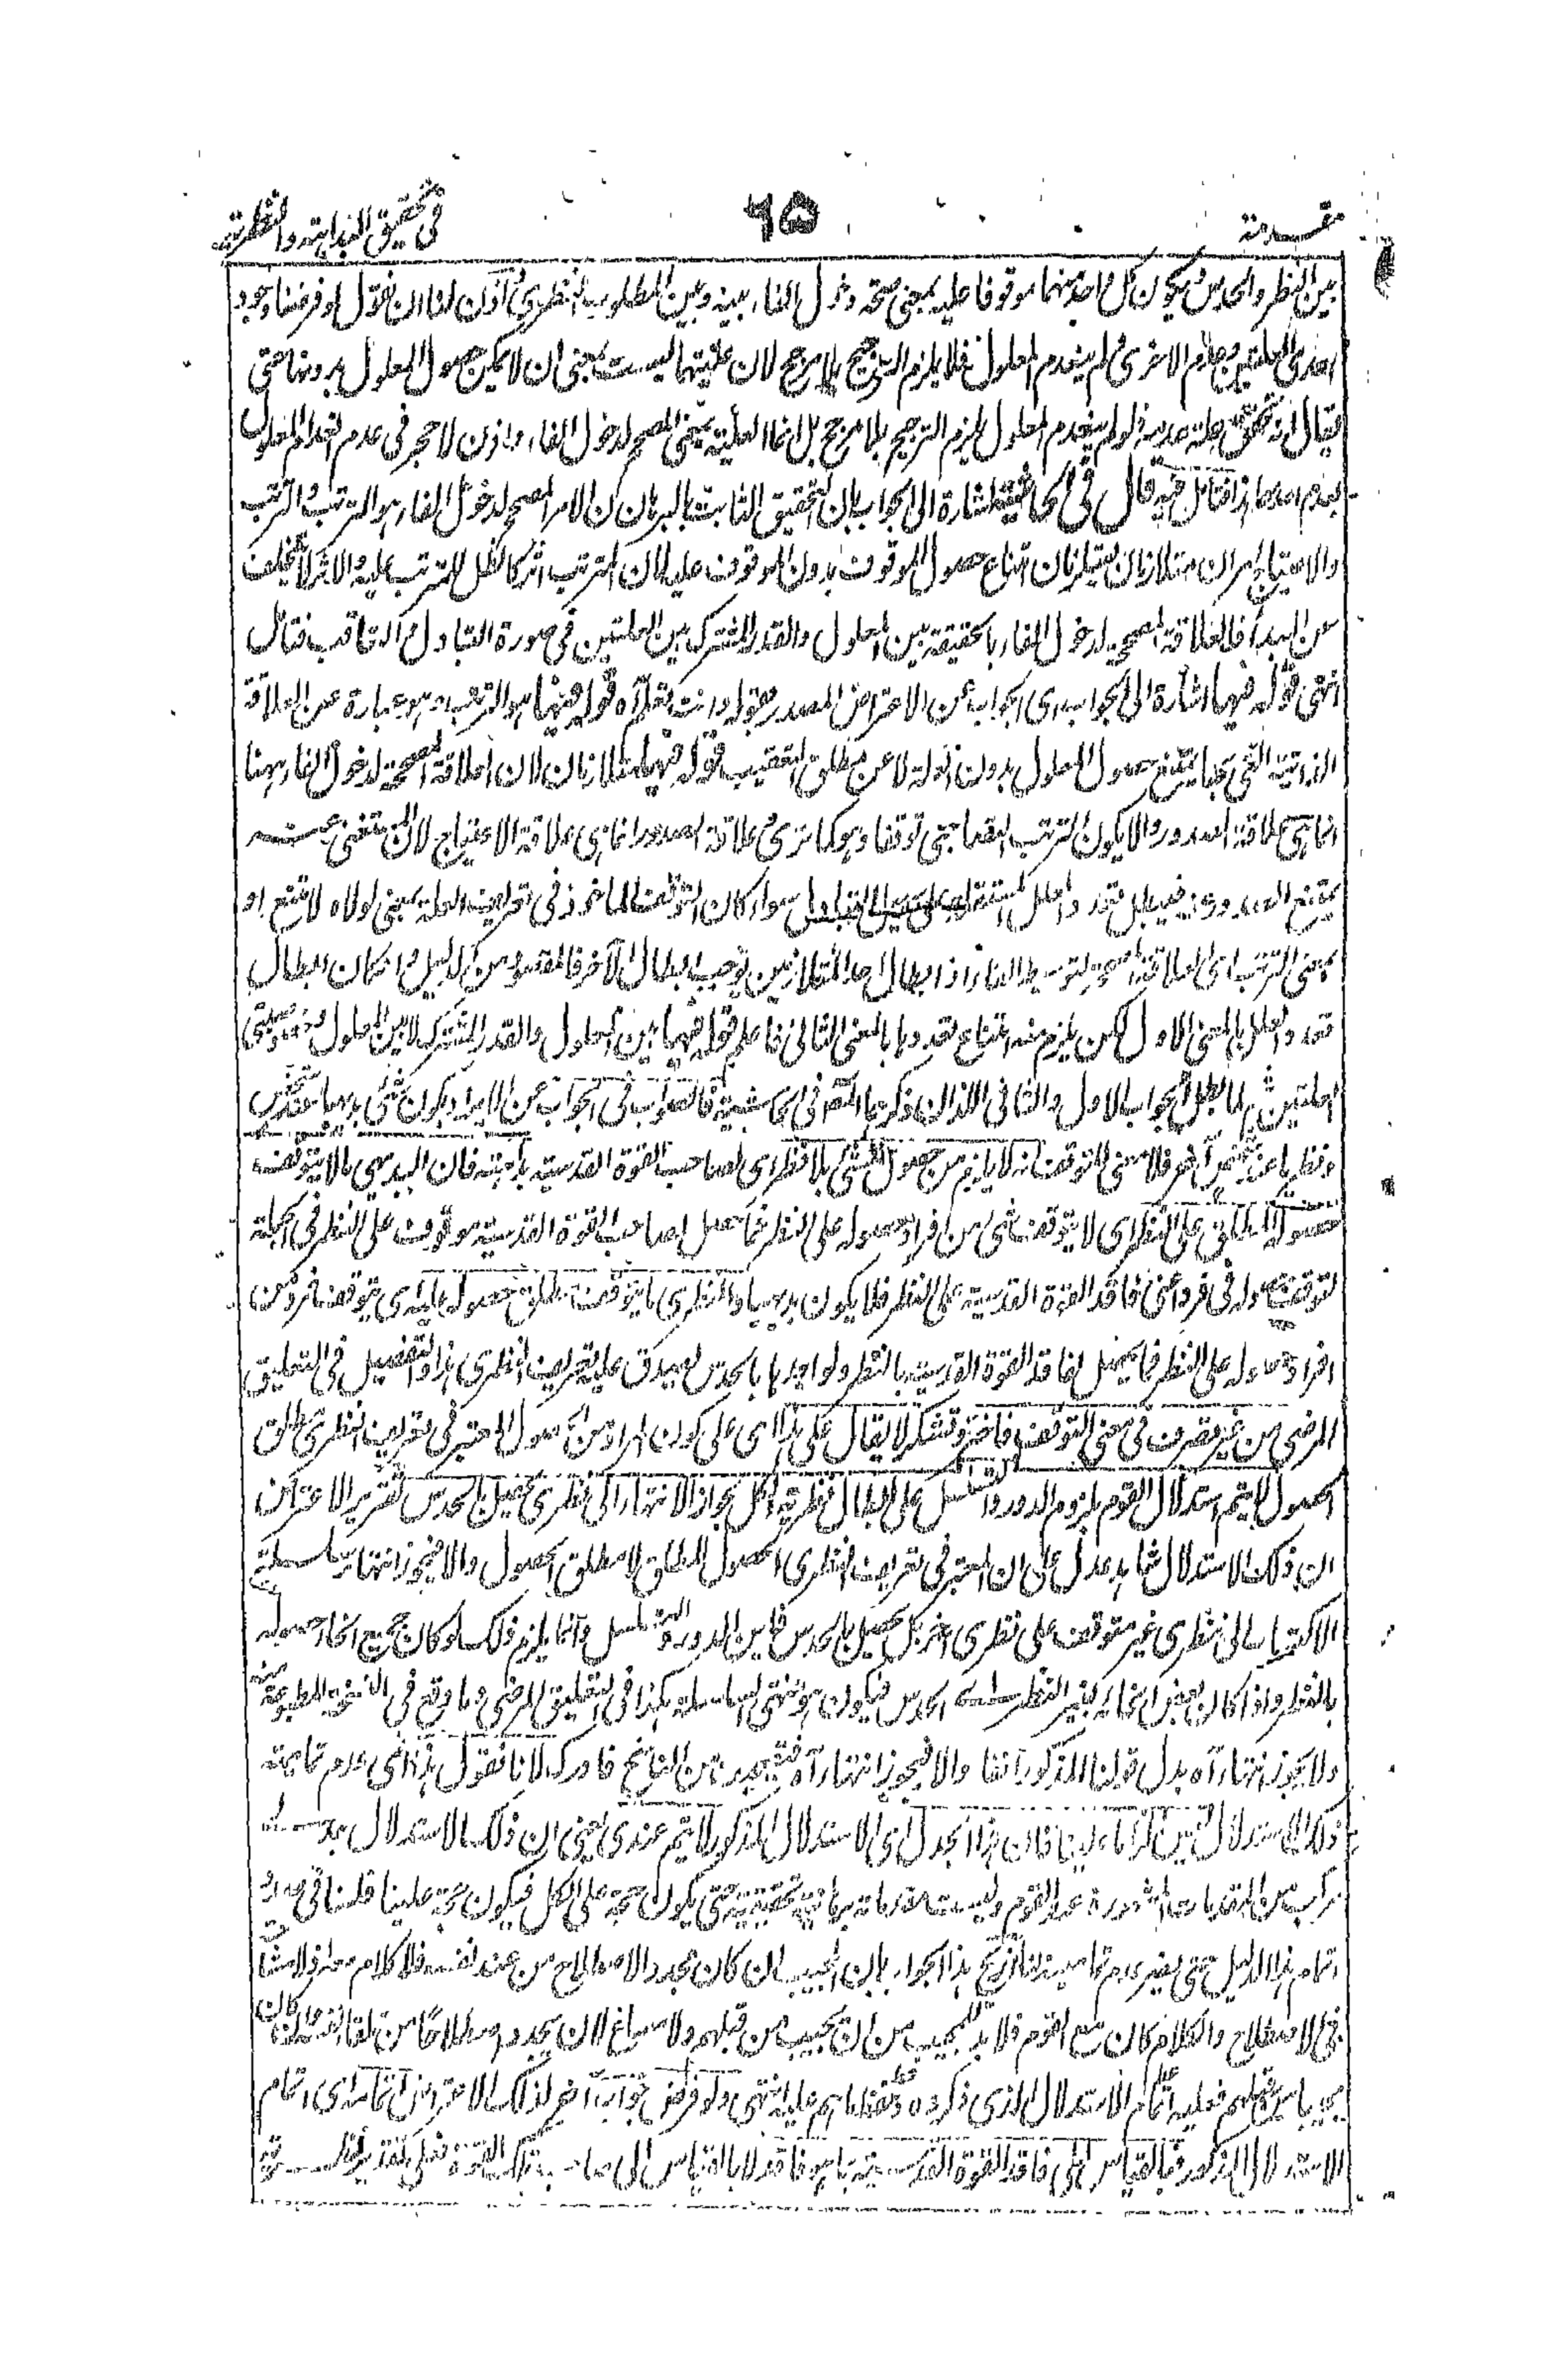 مقدمة
٦٥
في تحقيق البداهة والنظرية
بين النظر والحدس فيكون كل واحد منهما موقوفا عليه بمعنى صحة دخول الفاء بينه وبين المطلوب النظري فاذن لنا ان نقول لو فرضنا وجود
احدى العلتين وعدم الاخرى ولم ينعدم المعلول فلا يلزم الترجيح بلا مرجح لان عليتهما ليست بمعنى ان لا يمكن حصول المعلول بدونها حتى
يقال انه تحقق علة عدمه فلو لم ينعدم المعلول يلزم الترجيح بلا مرجح بل انما العلية بمعنى المصحح لدخول الفاء واذن لا حجر في عدم انعدام المعلول
بعدم احدهما اذا فتأمل فيه قال في الحاشية اشارة الى الجواب بان التحقيق الثابت بالبرهان ان الامر المصحح لدخول الفاء هو الترتب والترتب
والاحتياج امران متلازمان يستلزمان امتناع حصول الموقوف بدون الموقوف عليه لان المترتب اثر كالظل للمترتب عليه والاثر لا يتخلف
عن المبدأ فالعلاقة المصححة لدخول الفاء بالحقيقة بين المعلول والقدر المشترك بين العلتين في صورة التبادل والتعاقب فتأمل
انتهى قوله فيها اشارة الى الجواب اى الجواب عن الاعتراض المصدر بقوله وانت تعلم آه قوله فيها هو الترتب وهو عبارة عن العلاقة
الذاتية التي بها يمتنع حصول المعلول بدون العلة لا عن مطلق التعقيب قوله فيها متلازمان لان العلاقة المصححة لدخول الفاء ههنا
انما هي علاقة الصدور والا يكون الترتب اتفاقا حتى توقفا وهو كما ترى وعلاقة الصدور انما هي علاقة الاحتياج لان المستغنى عنه
يمتنع الصدور عنه فيبطل تعدد العلل المستقلة على سبيل التبادل سواء كان التوقف الماخوذ في تعريف العلة بمعنى لولاه لامتنع او
بمعنى الترتب اى العلاقة المصححة لتوسيط الفاء اذ ابطال احد المتلازمين يوجب ابطال الآخر فالمقصود من الدليل وان كان ابطال
تعدد العلل بالمعنى الاول لكن يلزم منه امتناع تعددها بالمعنى الثاني فاعلم قوله فيها بين المعلول والقدر المشترك لا بين المعلول وخصوصيتي
العلتين ثم لما بطل الجواب الاول والثاني اللذان ذكرهما المصنف في الحاشية فالصواب في الجواب عن الايراد بكون شئ بديهيا عند شخص
ونظريا عند شخص آخر فلا معنى للتوقف انه لا يلزم من حصول الشئ بلا نظر اى لصاحب القوة القدسية بداهته فان البديهي ما لا يتوقف
حصوله المطلق على النظر اى لا يتوقف شئ من افراد حصوله على النظر فما يحصل لصاحب القوة القدسية موقوف على النظر في الجملة
لتوقف حصوله في فرد اعني فاقد القوة القدسية على النظر فلا يكون بديهيا والنظري ما يتوقف مطلق حصوله عليه اى يتوقف فرد من
افراد حصوله على النظر فما يحصل لفاقد القوة القدسية بالنظر ولواجدها بالحدس يصدق عليه تعريف النظري هذا والتفصيل في التعليق
المرضي من غير تصرف في معنى التوقف فاختره وتشكر لا يقال على هذا اى على كون المراد من الحصول المعتبر في تعريف النظري مطلق
الحصول لا يتم استدلال القوم بلزوم الدور والتسلسل على ابطال نظرية الكل لجواز الانتهاء الى نظري يحصل بالحدس تقرير الاعتراض
ان ذلك الاستدلال شاهد عدل على ان المعتبر في تعريف النظري الحصول المطلق لا مطلق الحصول والا فيجوز انتهاء سلسلة
الاكتساب الى نظري غير متوقف على نظري آخر بل يحصل بالحدس فاين الدور والتسلسل وانما يلزم ذلك لو كان جميع انحاء حصوله
بالنظر واذا كان بعض انحائه بغير النظر اى الحدس فيكون هو منتهى السلسلة هكذا في التعليق المرضي وما وقع في النسخ المطبوعة منه
ولا يجوز انتهاء آه بدل قولنا المذكور آنفا والا فيجوز انتهاء آه فتصحيف من الناسخ فادركه لانا نقول هذا اى عدم تمامية
ذلك الاستدلال ليس نقضا علينا فان هذا الجدل اى الاستدلال المذكور لا يتم عندي يعني ان ذلك الاستدلال جدلي
مركب من المقدمات المشهورة عند القوم وليست مقدماته برهانية تحقيقية حتى يكون حجة على الكل فيكون حجة علينا فلسنا في صدد
اتمام هذا الدليل حتى يضر عدم تماميته لنا هذا الجواب بان المجيب ان كان بصدد الاصطلاح من عند نفسه فلا كلام معه اذ لا مشاحة
في الاصطلاح والكلام كان مع القوم فلا بد للمجيب من ان يجيب من قبلهم ولا مساغ لان يجدد اصطلاحا من تلقاء نفسه وان كان
مجيبا من قبلهم فعليه اتمام الاستدلال الذي ذكروه انتهى ولو فرض جواب آخر لذلك الاعتراض اتمامه اى اتمام
الاستدلال المذكور فبالقياس الى فاقد القوة القدسية بما هو فاقد لا بالقياس الى صاحب تلك القوة فعلى تقدير